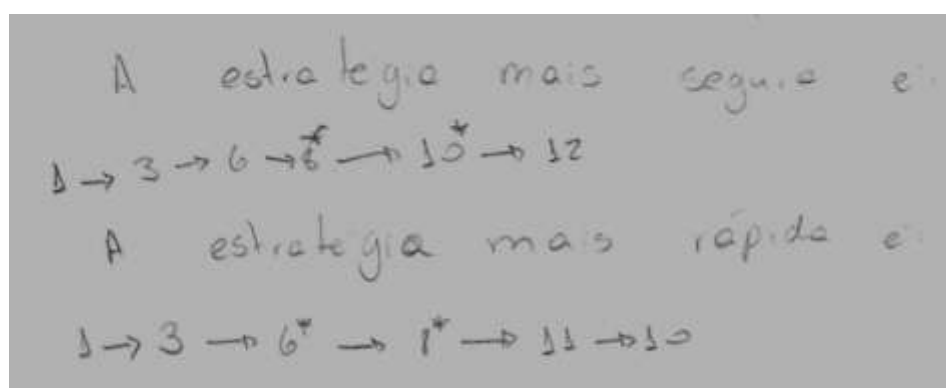 A estrategia mais segura e:
1 → 3 → 6 → 8* → 10* → 12
A estrategia mais rápida e:
1 → 3 → 6* → 8* → 11 → 10